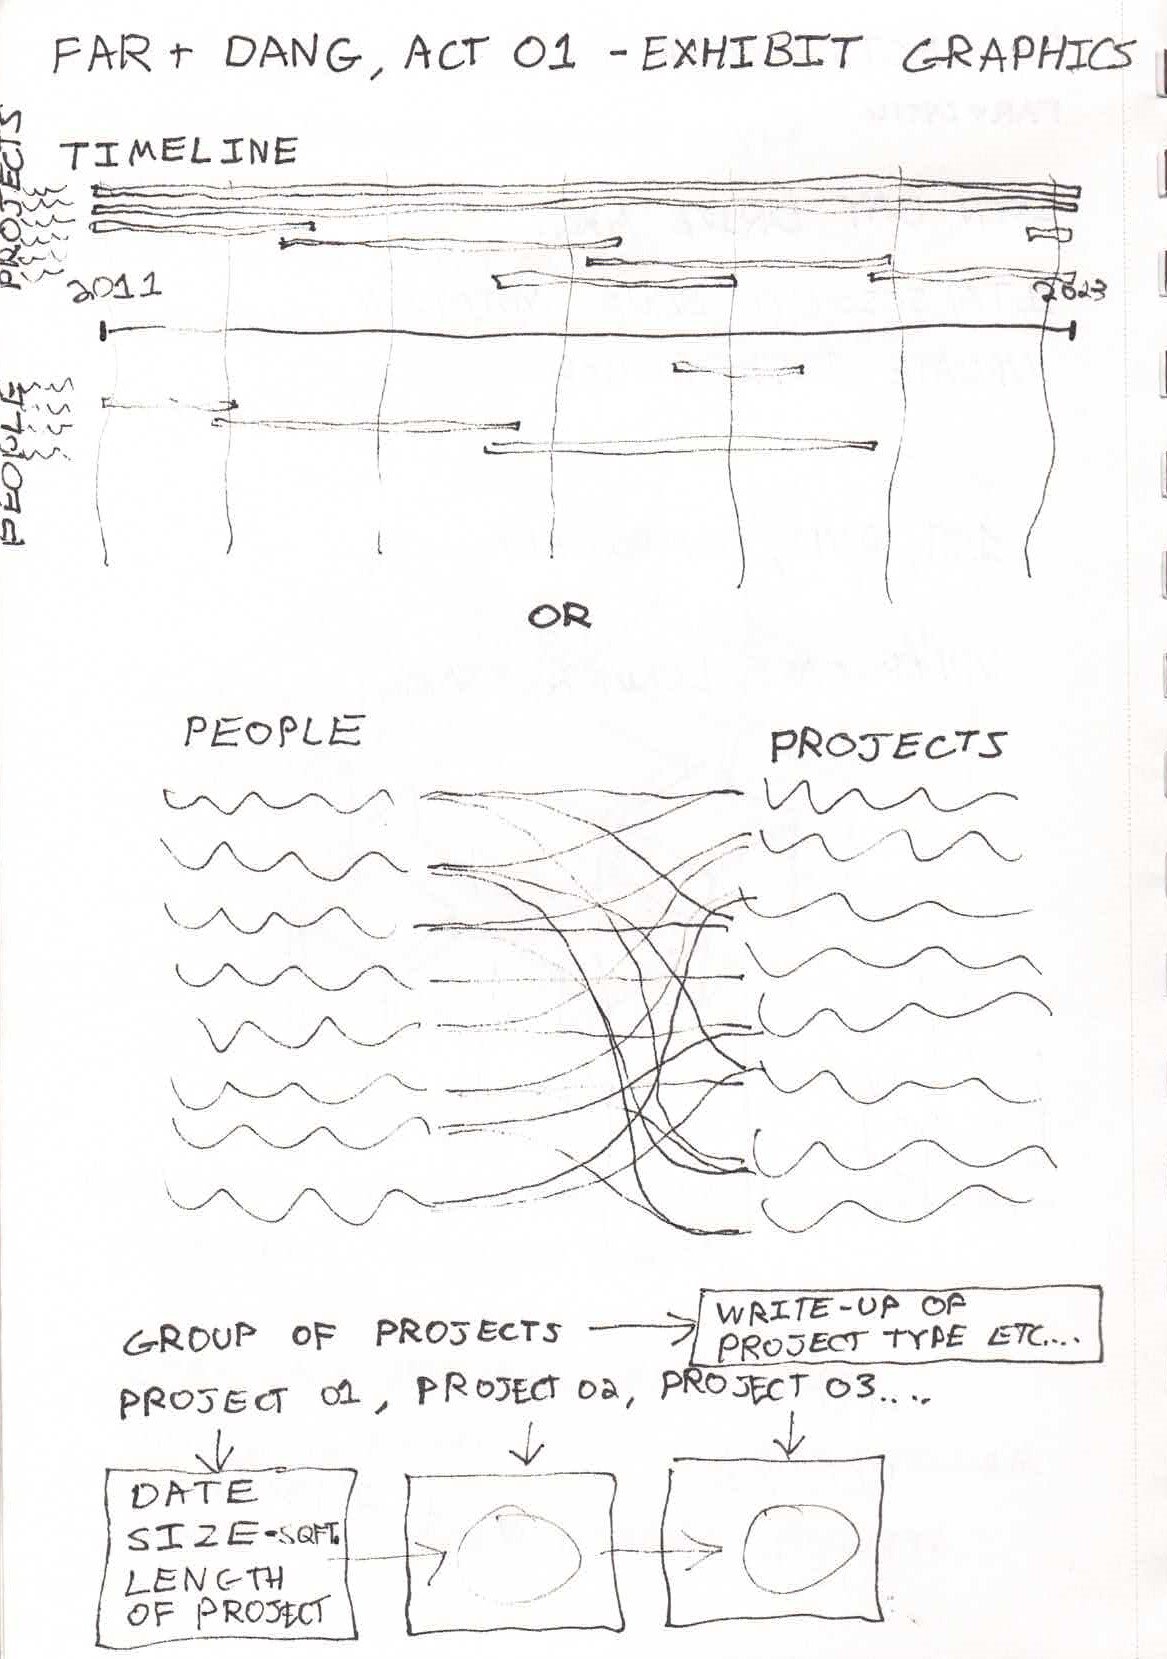 FAR + DANG, ACT 01 - EXHIBIT GRAPHICS
TIMELINE
PROJECTS
2011
2023
PEOPLE
OR
PEOPLE
PROJECTS
GROUP OF PROJECTS
WRITE-UP OF
PROJECT TYPE ETC....
PROJECT 01, PROJECT 02, PROJECT 03....
DATE
SIZE-SQFT.
LENGTH
OF PROJECT